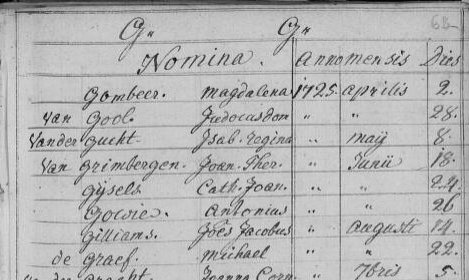 G„ G„
Nomina. Anno mensis Dies
Gombeer. Magdalena 1725 aprilis 2.
van Gool. Judocus dom „ „ 28.
Vander Gucht. Isab. Regina „ maij 8.
Van Grimbergen. Joan. Ther. „ Junii 18.
Gijsels. Cath. Joan. „ „ 24.
Antonius „ „ 26
Gilliams. Joēs Jacobus „ augusti 14.
de Graef. Michael „ „ 22.
Joanna Corn „ 7bris 5.